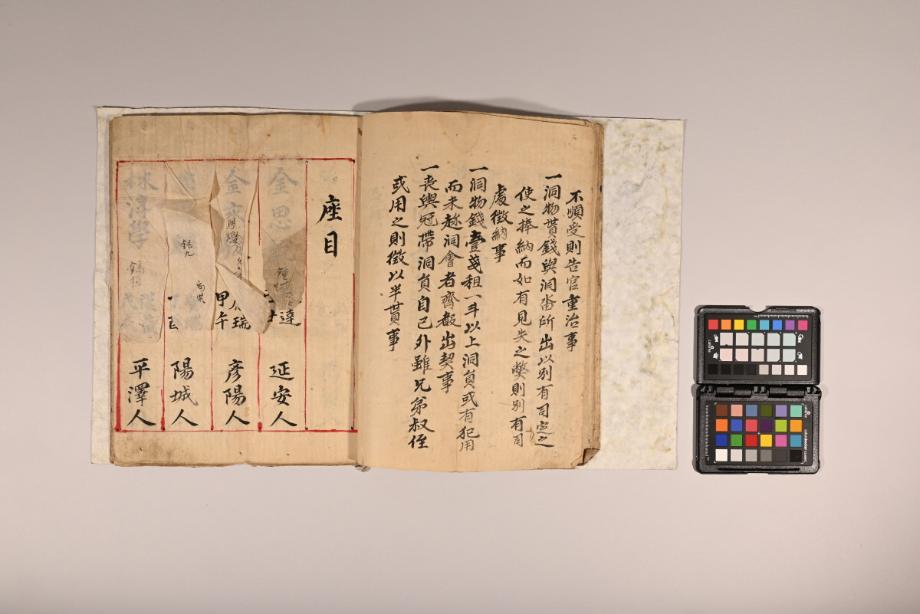 不順受則告官重治事
一洞物貰錢與洞畓所出以別有司定之
使之捧納而如有見失之弊則別有司
處徵納事
一洞物錢壹戔租一斗以上洞員或有犯用
而未趂洞會者齊散出契事
一喪與冠帶洞員自己外雖兄弟叔侄
或用之則徵以半貫事
座目
金思
達
延安人
金
瑞
甲午
彦陽人
陽城人
林淳學
平澤人